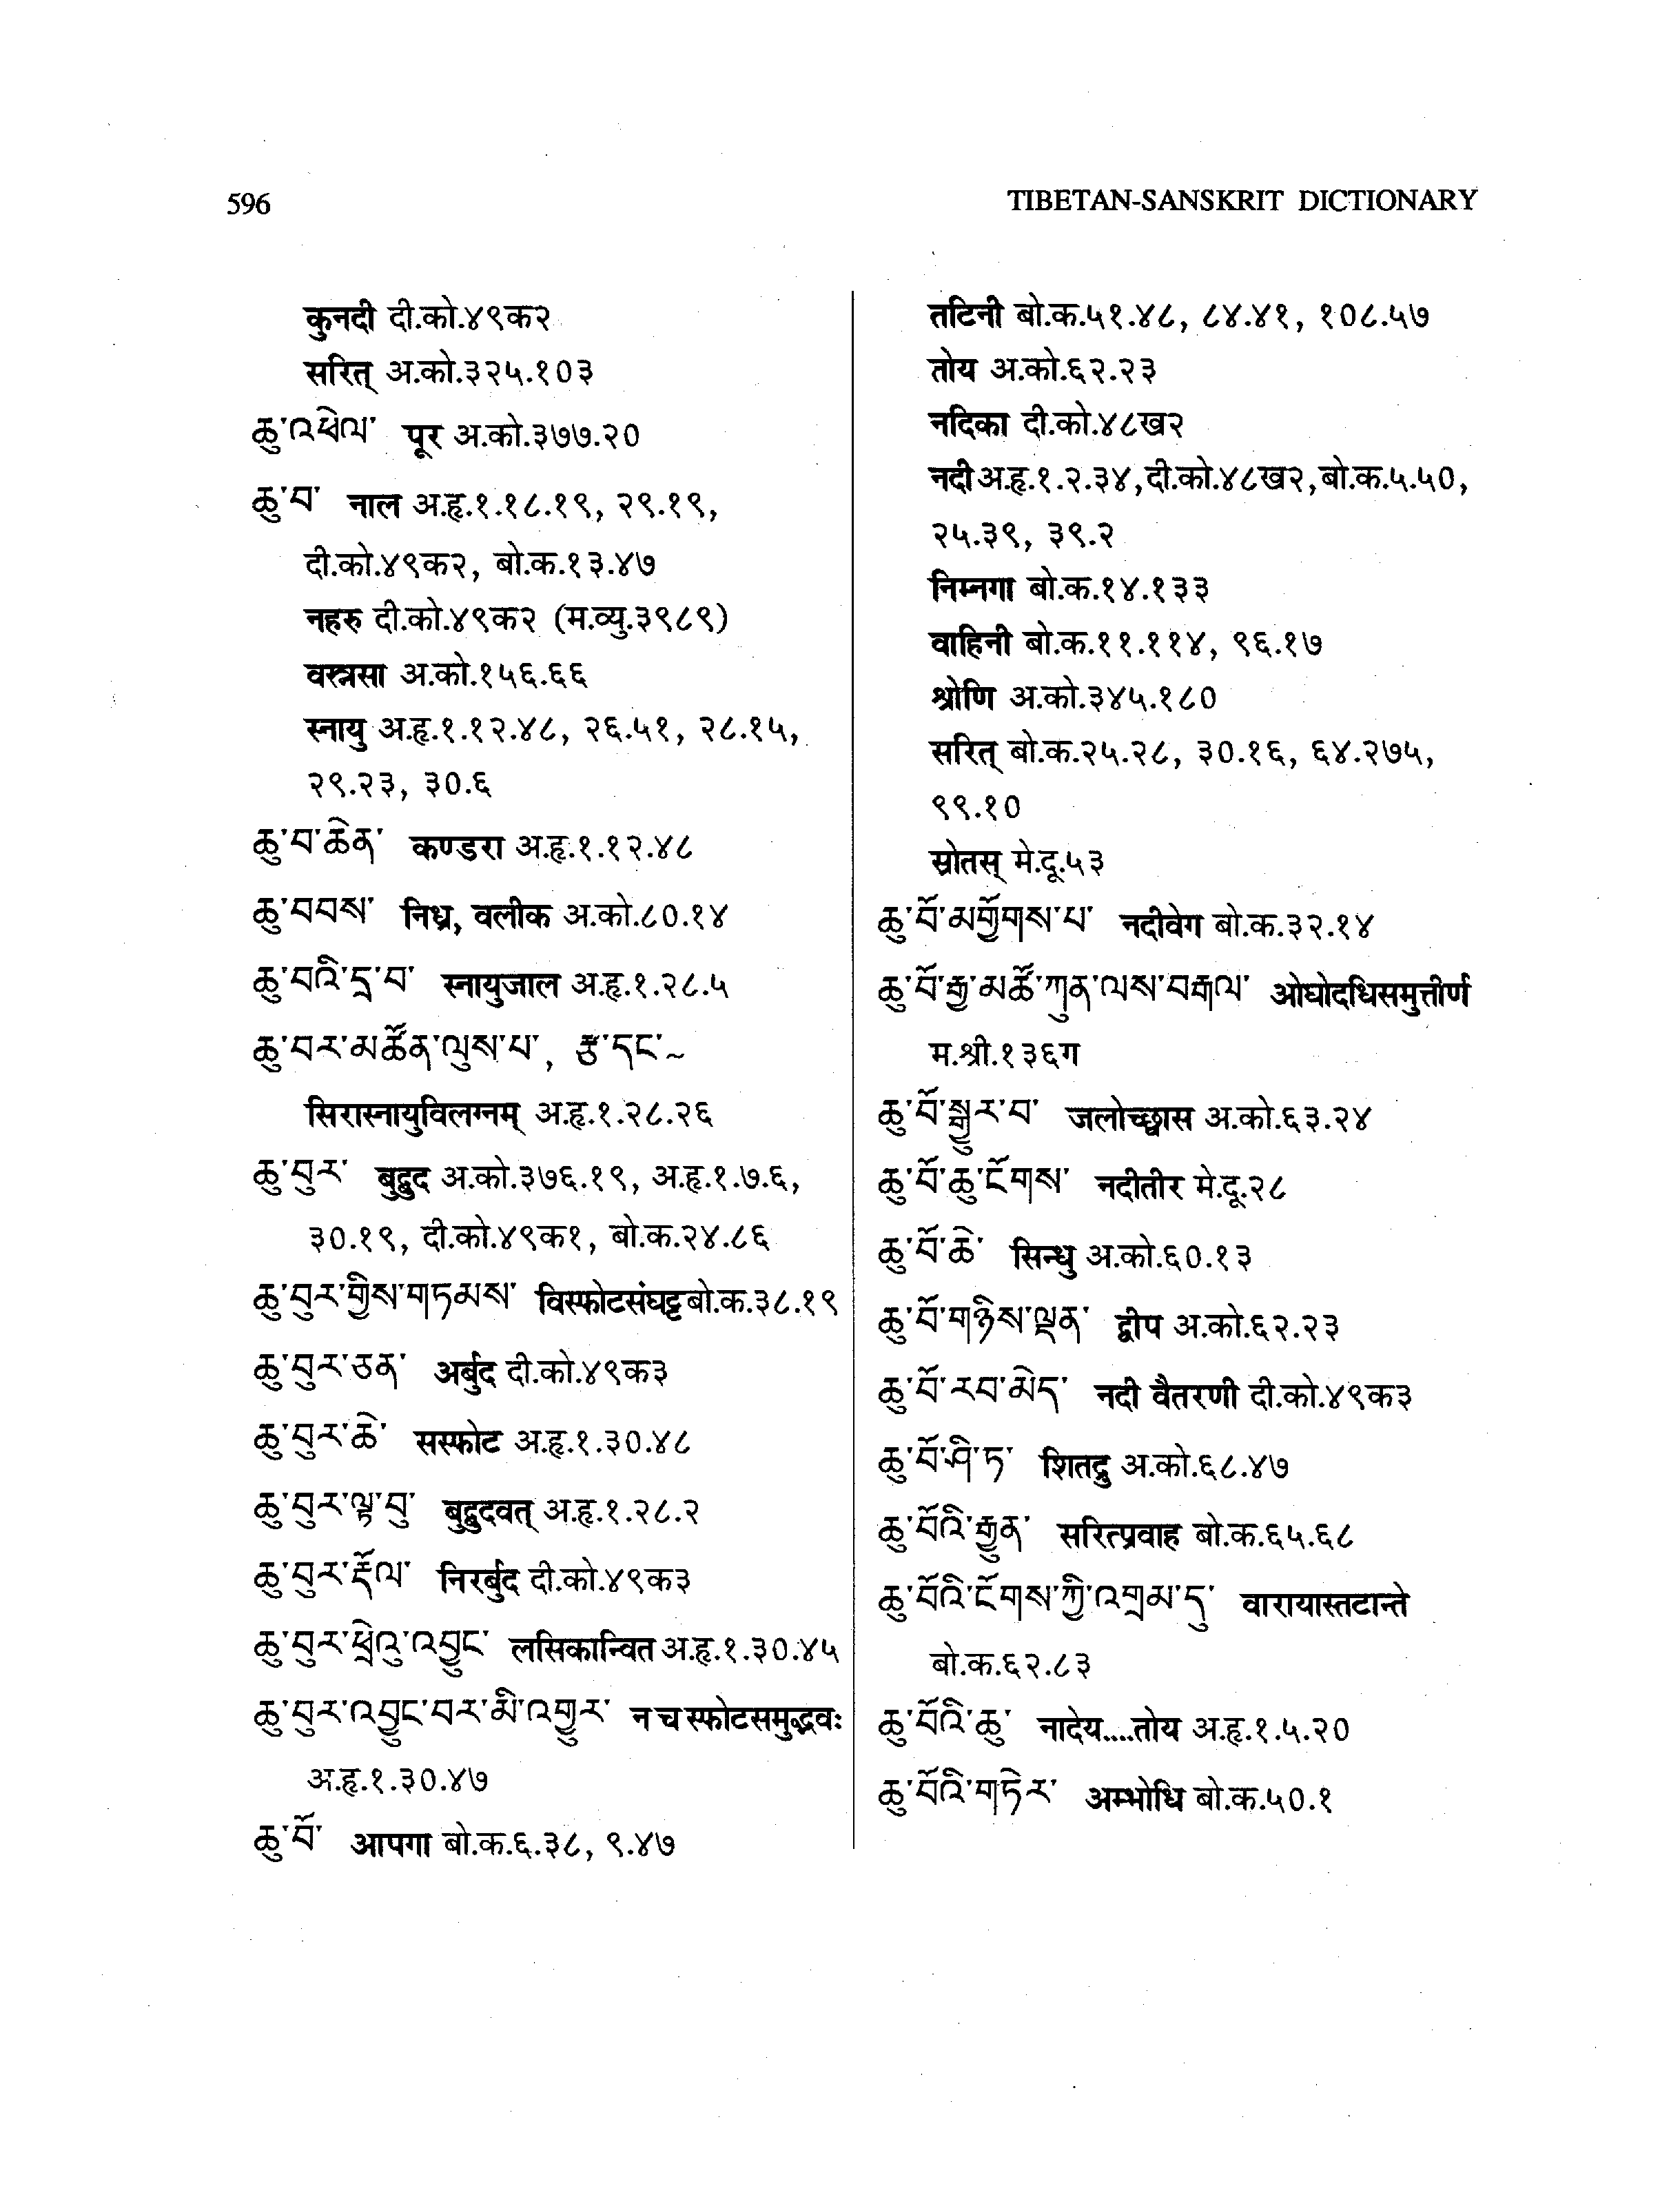 596
TIBETAN-SANSKRIT DICTIONARY
कुनदी दी.को.४९क२
सरित् अ.को.३२५.१०३
ཆུ་འཕེལ་ पूर अ.को.३७७.२०
ཆུ་བ་ नाल अ.हृ.१.१८.१९, २९.१९,
दी.को.४९क२, बो.क.१३.४७
नहरु दी.को.४९क२ (म.व्यु.३९८९)
वस्नसा अ.को.१५६.६६
स्नायु अ.हृ.१.१२.४८, २६.५१, २८.१५,
२९.२३, ३०.६
ཆུ་བ་ཆེན་ कण्डरा अ.हृ.१.१२.४८
ཆུ་བབས་ निध्र, वलीक अ.को.८०.१४
ཆུ་བའི་དྲ་བ་ स्नायुजाल अ.हृ.१.२८.५
ཆུ་བར་མཚོན་ལུས་པ་, རྩ་དང་~
सिरास्नायुविलग्नम् अ.हृ.१.२८.२६
ཆུ་བུར་ बुद्बुद अ.को.३७६.१९, अ.हृ.१.७.६,
३०.१९, दी.को.४९क१, बो.क.२४.८६
ཆུ་བུར་གྱིས་གཏམས་ विस्फोटसंघट्ट बो.क.३८.१९
ཆུ་བུར་ཅན་ अर्बुद दी.को.४९क३
ཆུ་བུར་ཆེ་ सस्फोट अ.हृ.१.३०.४८
ཆུ་བུར་ལྟ་བུ་ बुद्बुदवत् अ.हृ.१.२८.२
ཆུ་བུར་རྡོལ་ निरर्बुद दी.को.४९क३
ཆུ་བུར་ཕྲེའུ་འབྱུང་ लसिकान्वित अ.हृ.१.३०.४५
ཆུ་བུར་འབྱུང་བར་མི་འགྱུར་ न च स्फोटसमुद्भवः
अ.हृ.१.३०.४७
ཆུ་བོ་ आपगा बो.क.६.३८, ९.४७
तटिनी बो.क.५१.४८, ८४.४१, १०८.५७
तोय अ.को.६२.२३
नदिका दी.को.४८ख२
नदी अ.हृ.१.२.३४, दी.को.४८ख२, बो.क.५.५०,
२५.३९, ३९.२
निम्नगा बो.क.१४.१३३
वाहिनी बो.क.११.११४, ९६.१७
श्रोणि अ.को.३४५.१८०
सरित् बो.क.२५.२८, ३०.१६, ६४.२७५,
९९.१०
स्रोतस् मे.दू.५३
ཆུ་བོ་མགྱོགས་པ་ नदीवेग बो.क.३२.१४
ཆུ་བོ་རྒྱ་མཚོ་ཀུན་ལས་བརྒལ་ ओघोदधिसमुत्तीर्ण
म.श्री.१३६ग
ཆུ་བོ་སྒྱུར་བ་ जलोच्छ्वास अ.को.६३.२४
ཆུ་བོ་ཆུ་ངོགས་ नदीतीर मे.दू.२८
ཆུ་བོ་ཆེ་ सिन्धु अ.को.६०.१३
ཆུ་བོ་གཉིས་ལྡན་ द्वीप अ.को.६२.२३
ཆུ་བོ་རབ་མེད་ नदी वैतरणी दी.को.४९क३
ཆུ་བོ་ཤི་ཏ་ शितद्रु अ.को.६८.४७
ཆུ་བོའི་རྒྱུན་ सरित्प्रवाह बो.क.६५.६८
ཆུ་བོའི་ངོགས་ཀྱི་འགྲམ་དུ་ वारायास्तटान्ते
बो.क.६२.८३
ཆུ་བོའི་ཆུ་ नादेय....तोय अ.हृ.१.५.२०
ཆུ་བོའི་གཏེར་ अम्भोधि बो.क.५०.१